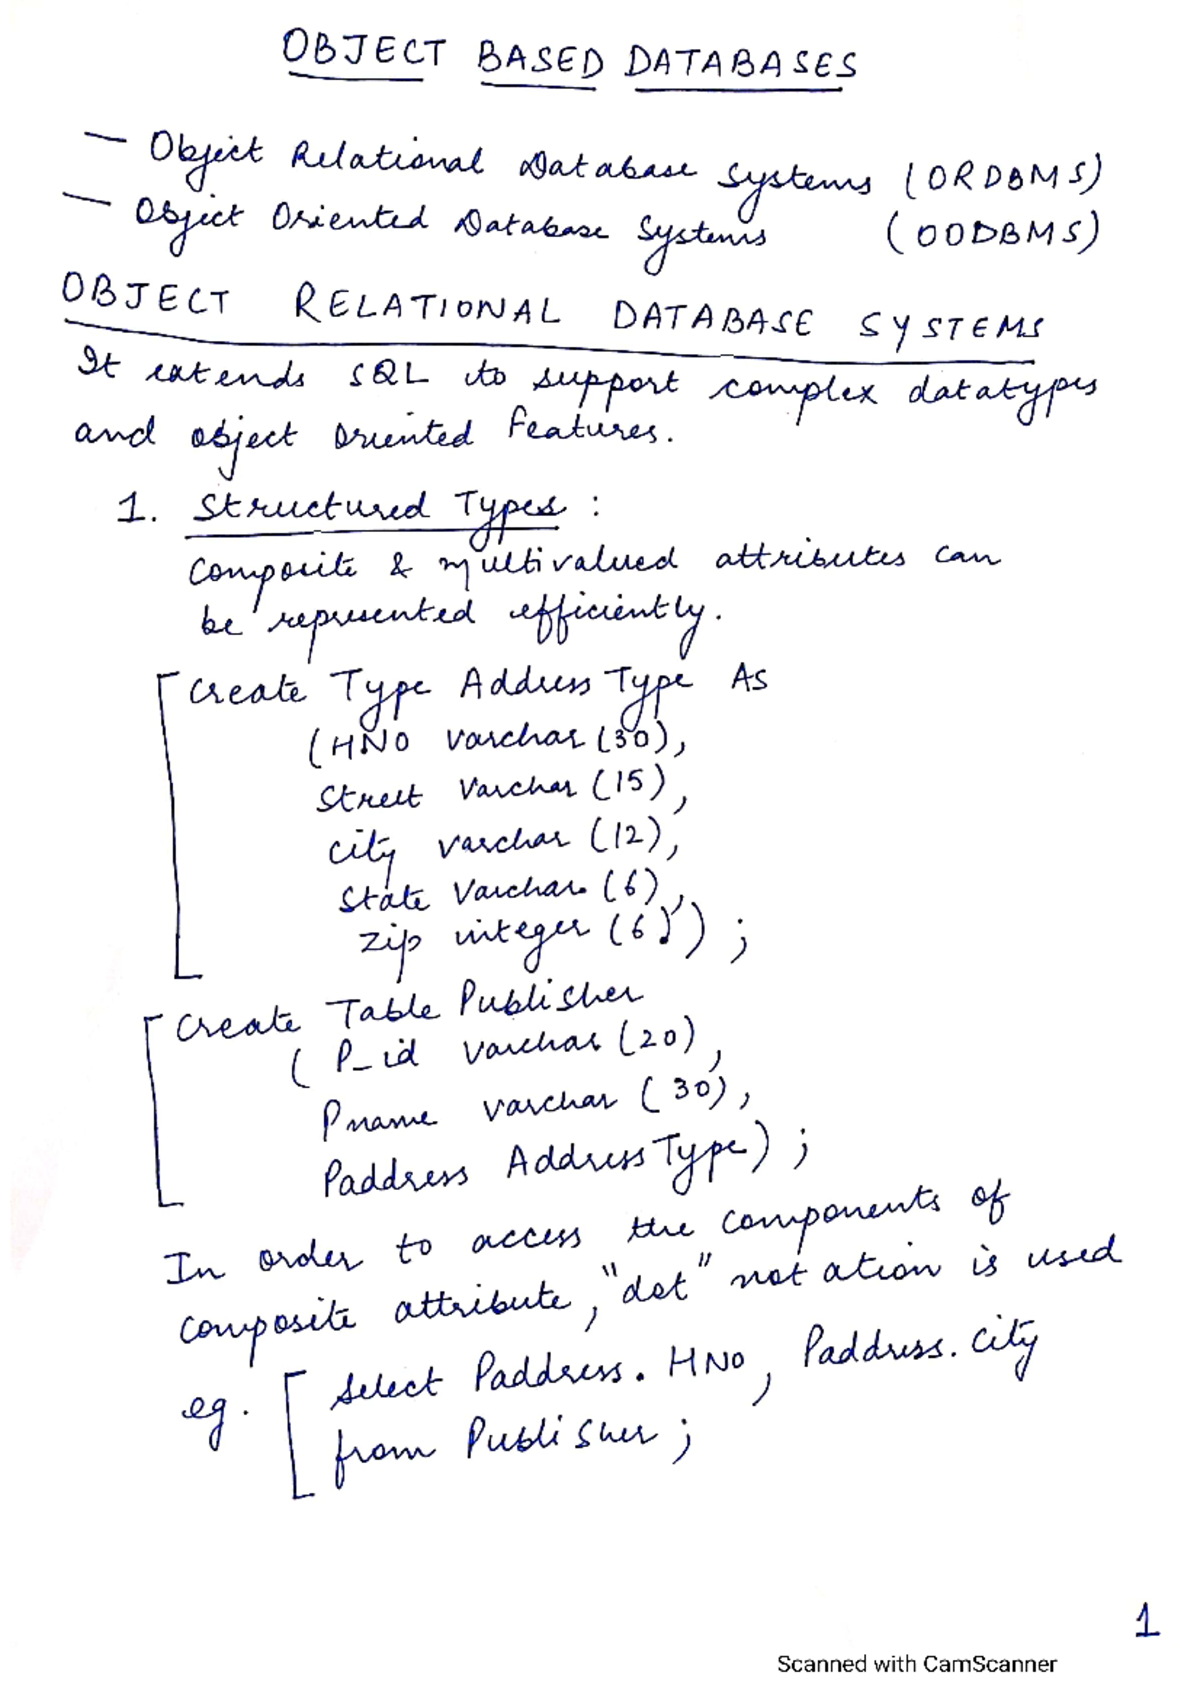 OBJECT BASED DATABASES
— Object Relational Database Systems (ORDBMS)
— Object Oriented Database Systems (OODBMS)
OBJECT RELATIONAL DATABASE SYSTEMS
It extends SQL to support complex datatypes
and object oriented features.
1. Structured Types :
Composite & multivalued attributes can
be represented efficiently.
Create Type AddressType As
(HNO varchar (30),
Street Varchar (15),
city varchar (12),
State Varchar (6),
zip integer (6));
Create Table Publisher
( P_id varchar (20),
Pname varchar (30),
Paddress AddressType);
In order to access the components of
composite attribute, "dot" notation is used
eg. Select Paddress. HNO, Paddress. City
from Publisher;
1
Scanned with CamScanner